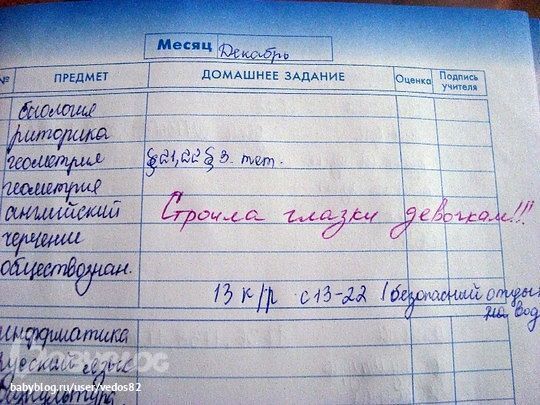 Месяц Декабрь
№ ПРЕДМЕТ ДОМАШНЕЕ ЗАДАНИЕ Оценка Подпись учителя
биология
риторика
геометрия §21,22 § 3. тет.
геометрия
английский Строила глазки девочкам!!!
черчение
обществознан.
13 к/р с 13-22 безопасный отдых
на вод
информатика
русский язык
физкультура
babyblog.ru/user/vedos82